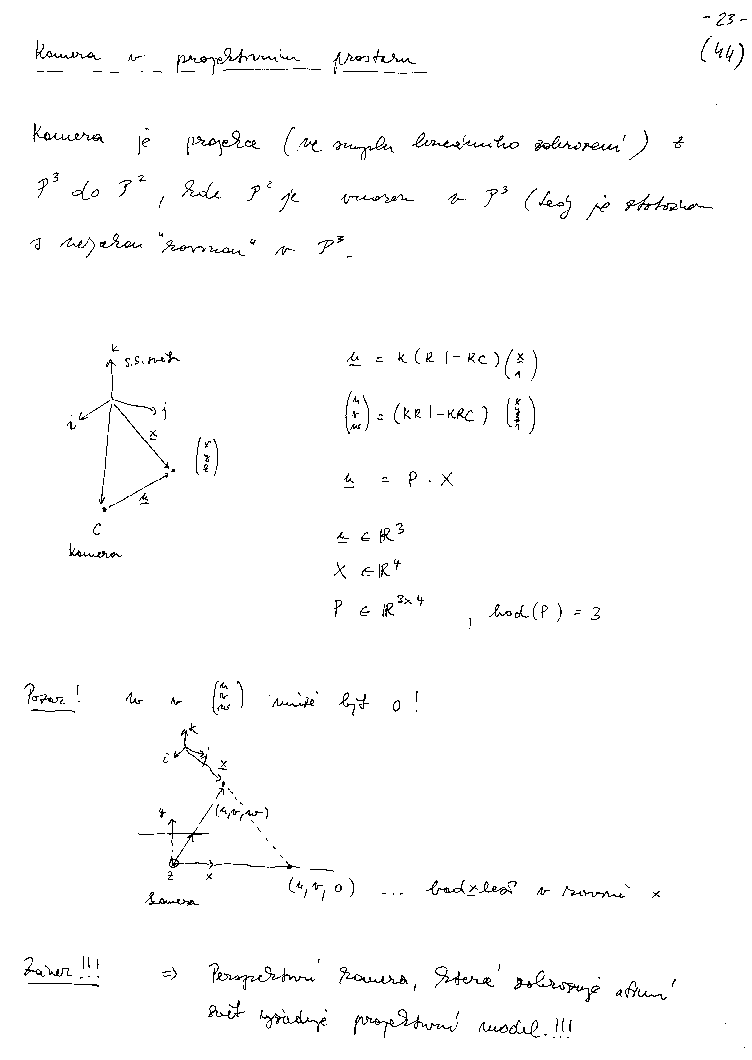 - 23 -
(44)
Kamera v projektivním prostoru
Kamera je projekce (ve smyslu lineárního zobrazení) z
P³ do P², kde P² je vnořen v P³ (tedy je ztotožněn
s nějakou "rovinou" v P³.
k
s.s. světa
i
j
x
(x y z)
u
C
Kamera
u = K (R | -RC) (x 1)
(u v w) = (KR | -KRC) (x y z 1)
u = P · X
u ∈ ℝ³
X ∈ ℝ⁴
P ∈ ℝ³ˣ⁴ , hod(P) = 3
Pozor! w v (u v w) může být 0!
k
i
j
x
y
(u, v, w)
z
x
(u, v, 0) ... bod x leží v rovině x
kamera
Závěr!!! => Perspektivní kamera, která zobrazuje afinní
svět vyžaduje projektivní model.!!!